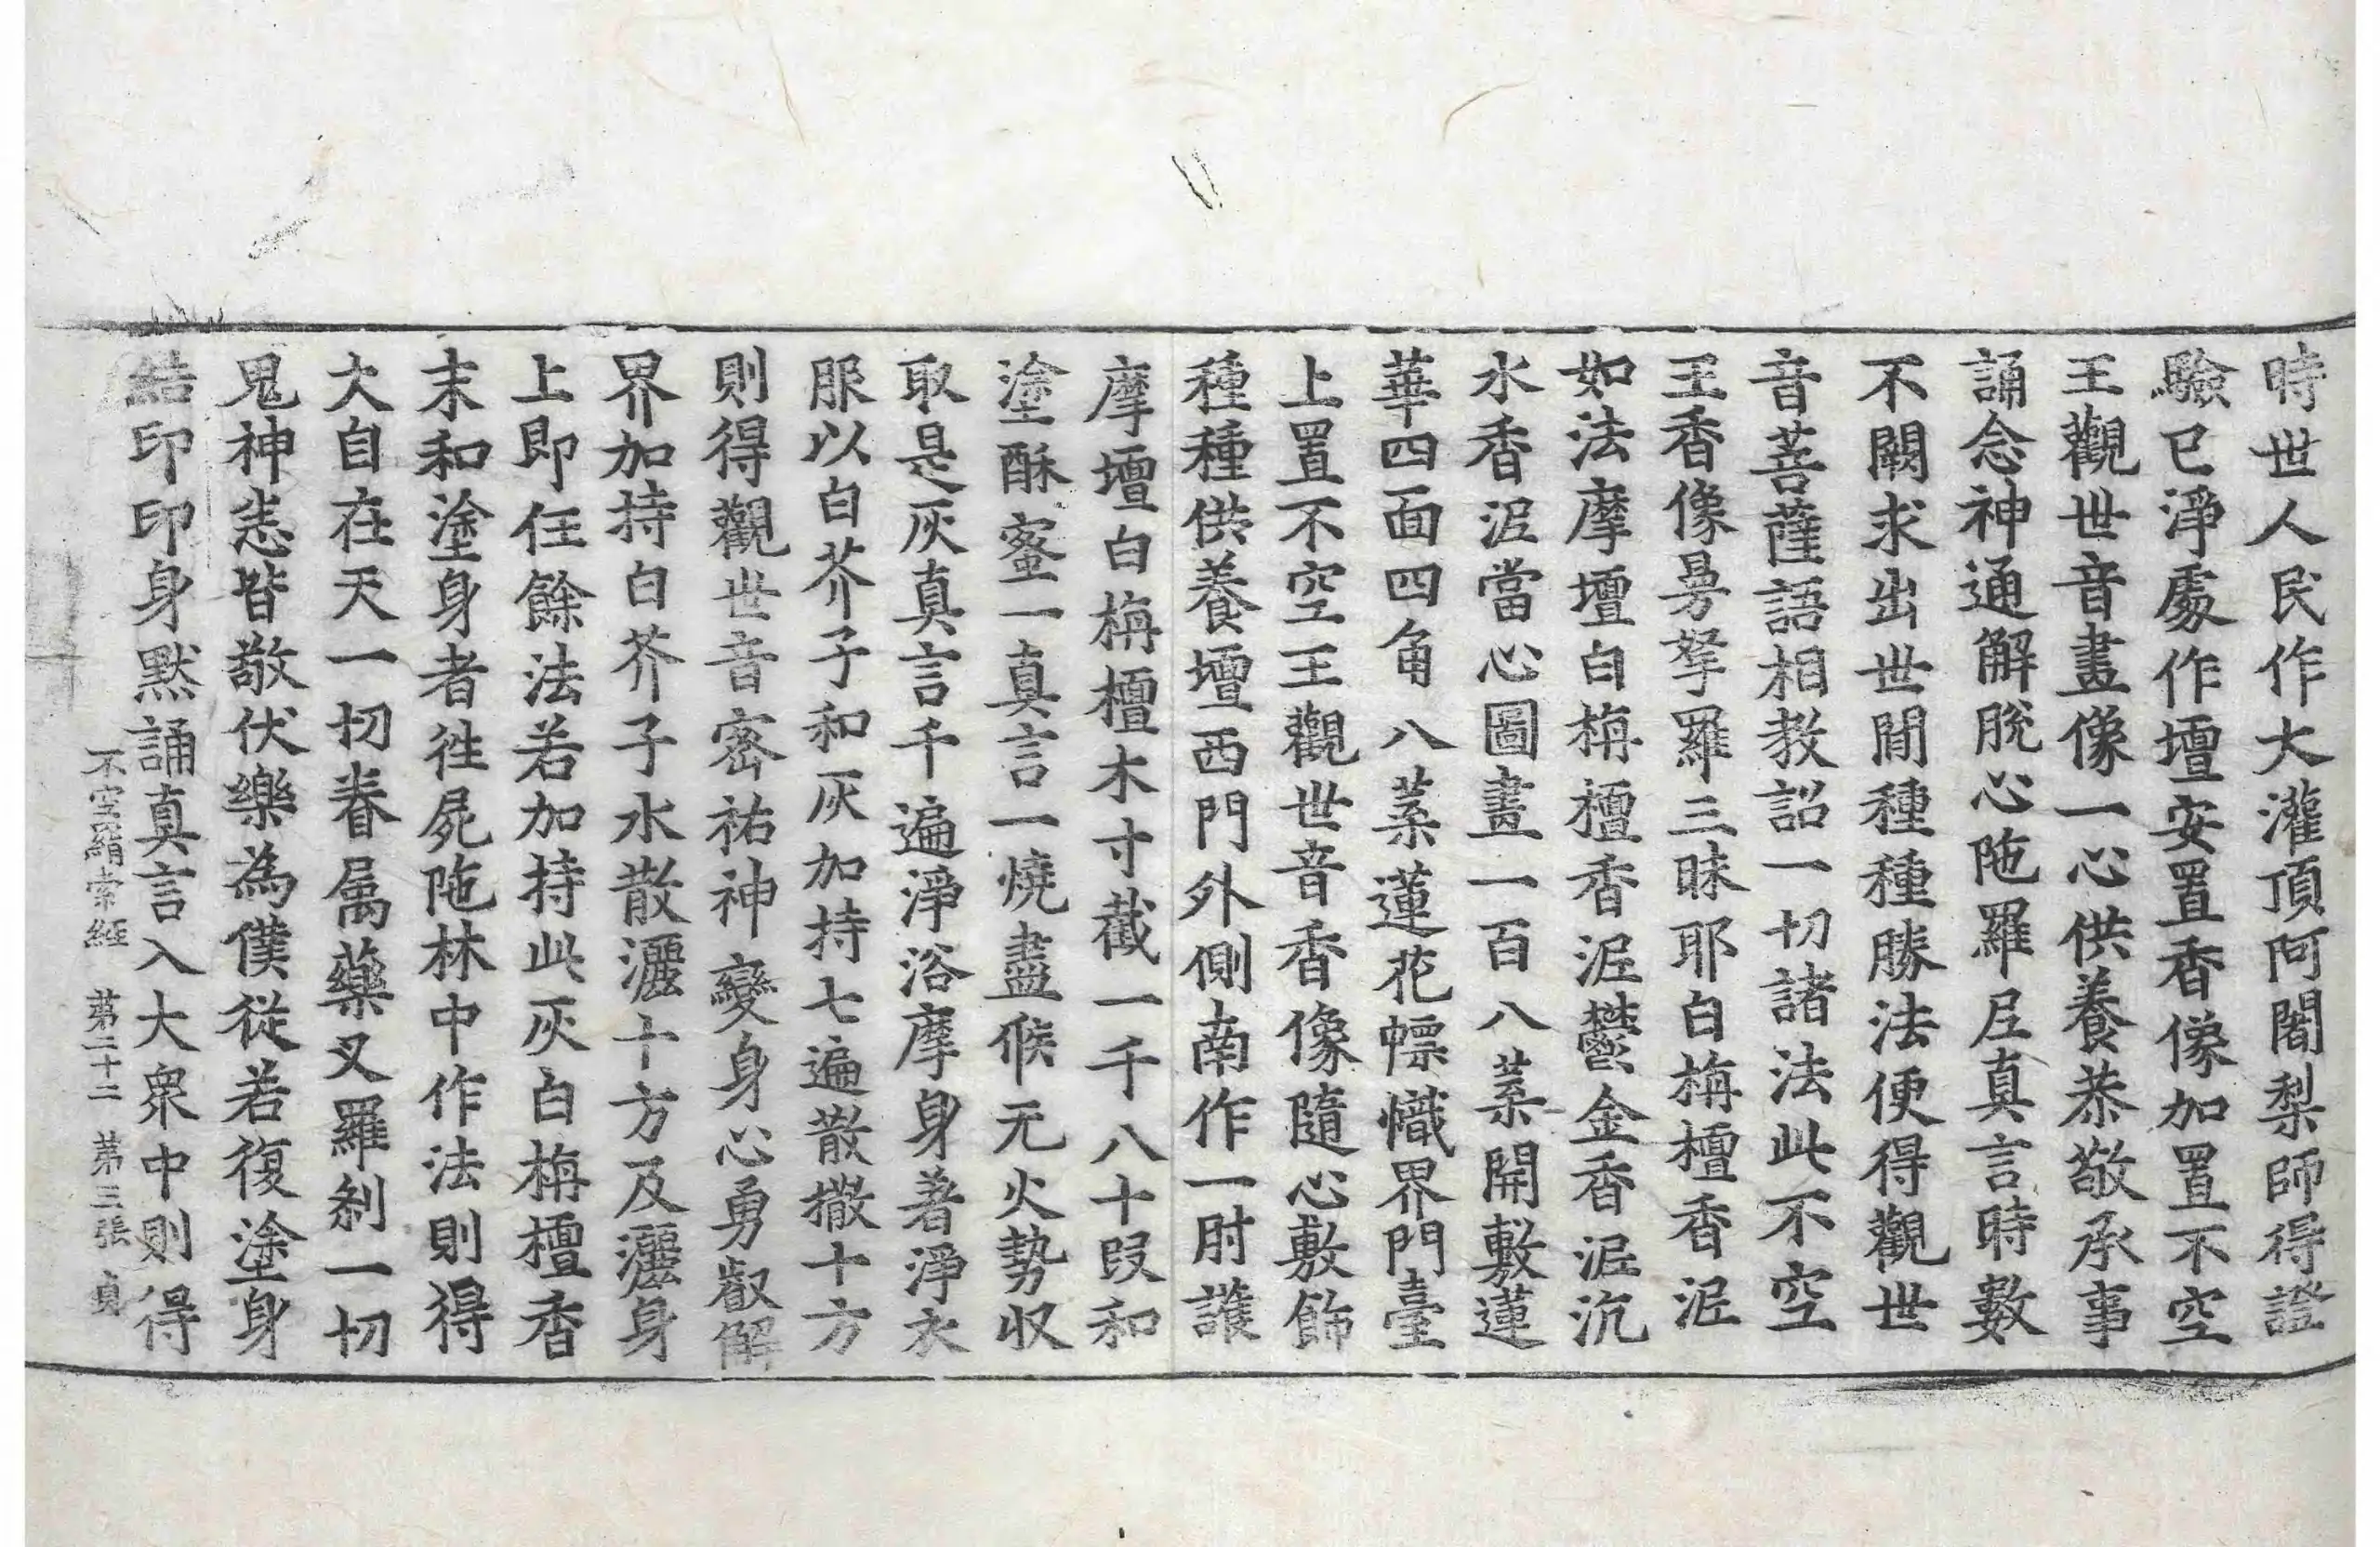 時世人民作大灌頂阿闍梨師得證
驗已淨處作壇安置香像加置不空
王觀世音畫像一心供養恭敬承事
誦念神通解脫心陁羅尼真言時數
不闕求出世間種種勝法便得觀世
音菩薩語相教詔一切諸法此不空
王香像曼拏羅三昧耶白栴檀香泥
如法摩壇白栴檀香泥欝金香泥沉
水香泥當心圖畫一百八葉開敷蓮
華四面四角八葉蓮花幖幟界門臺
上置不空王觀世音香像隨心敷飾
種種供養壇西門外側南作一肘護
摩壇白栴檀木寸截一千八十段和
塗酥蜜一真言一燒盡候无火勢収
取是灰真言千遍淨浴摩身著淨衣
服以白芥子和灰加持七遍散撒十方
則得觀世音密祐神變身心勇叡解
界加持白芥子水散灑十方及灑身
上即任餘法若加持此灰白栴檀香
末和塗身者徃屍陁林中作法則得
大自在天一切眷属藥叉羅剎一切
鬼神悉皆敬伏樂為僕從若復塗身
結印印身默誦真言入大衆中則得
不空羂索經 第二十二 第三張 貞